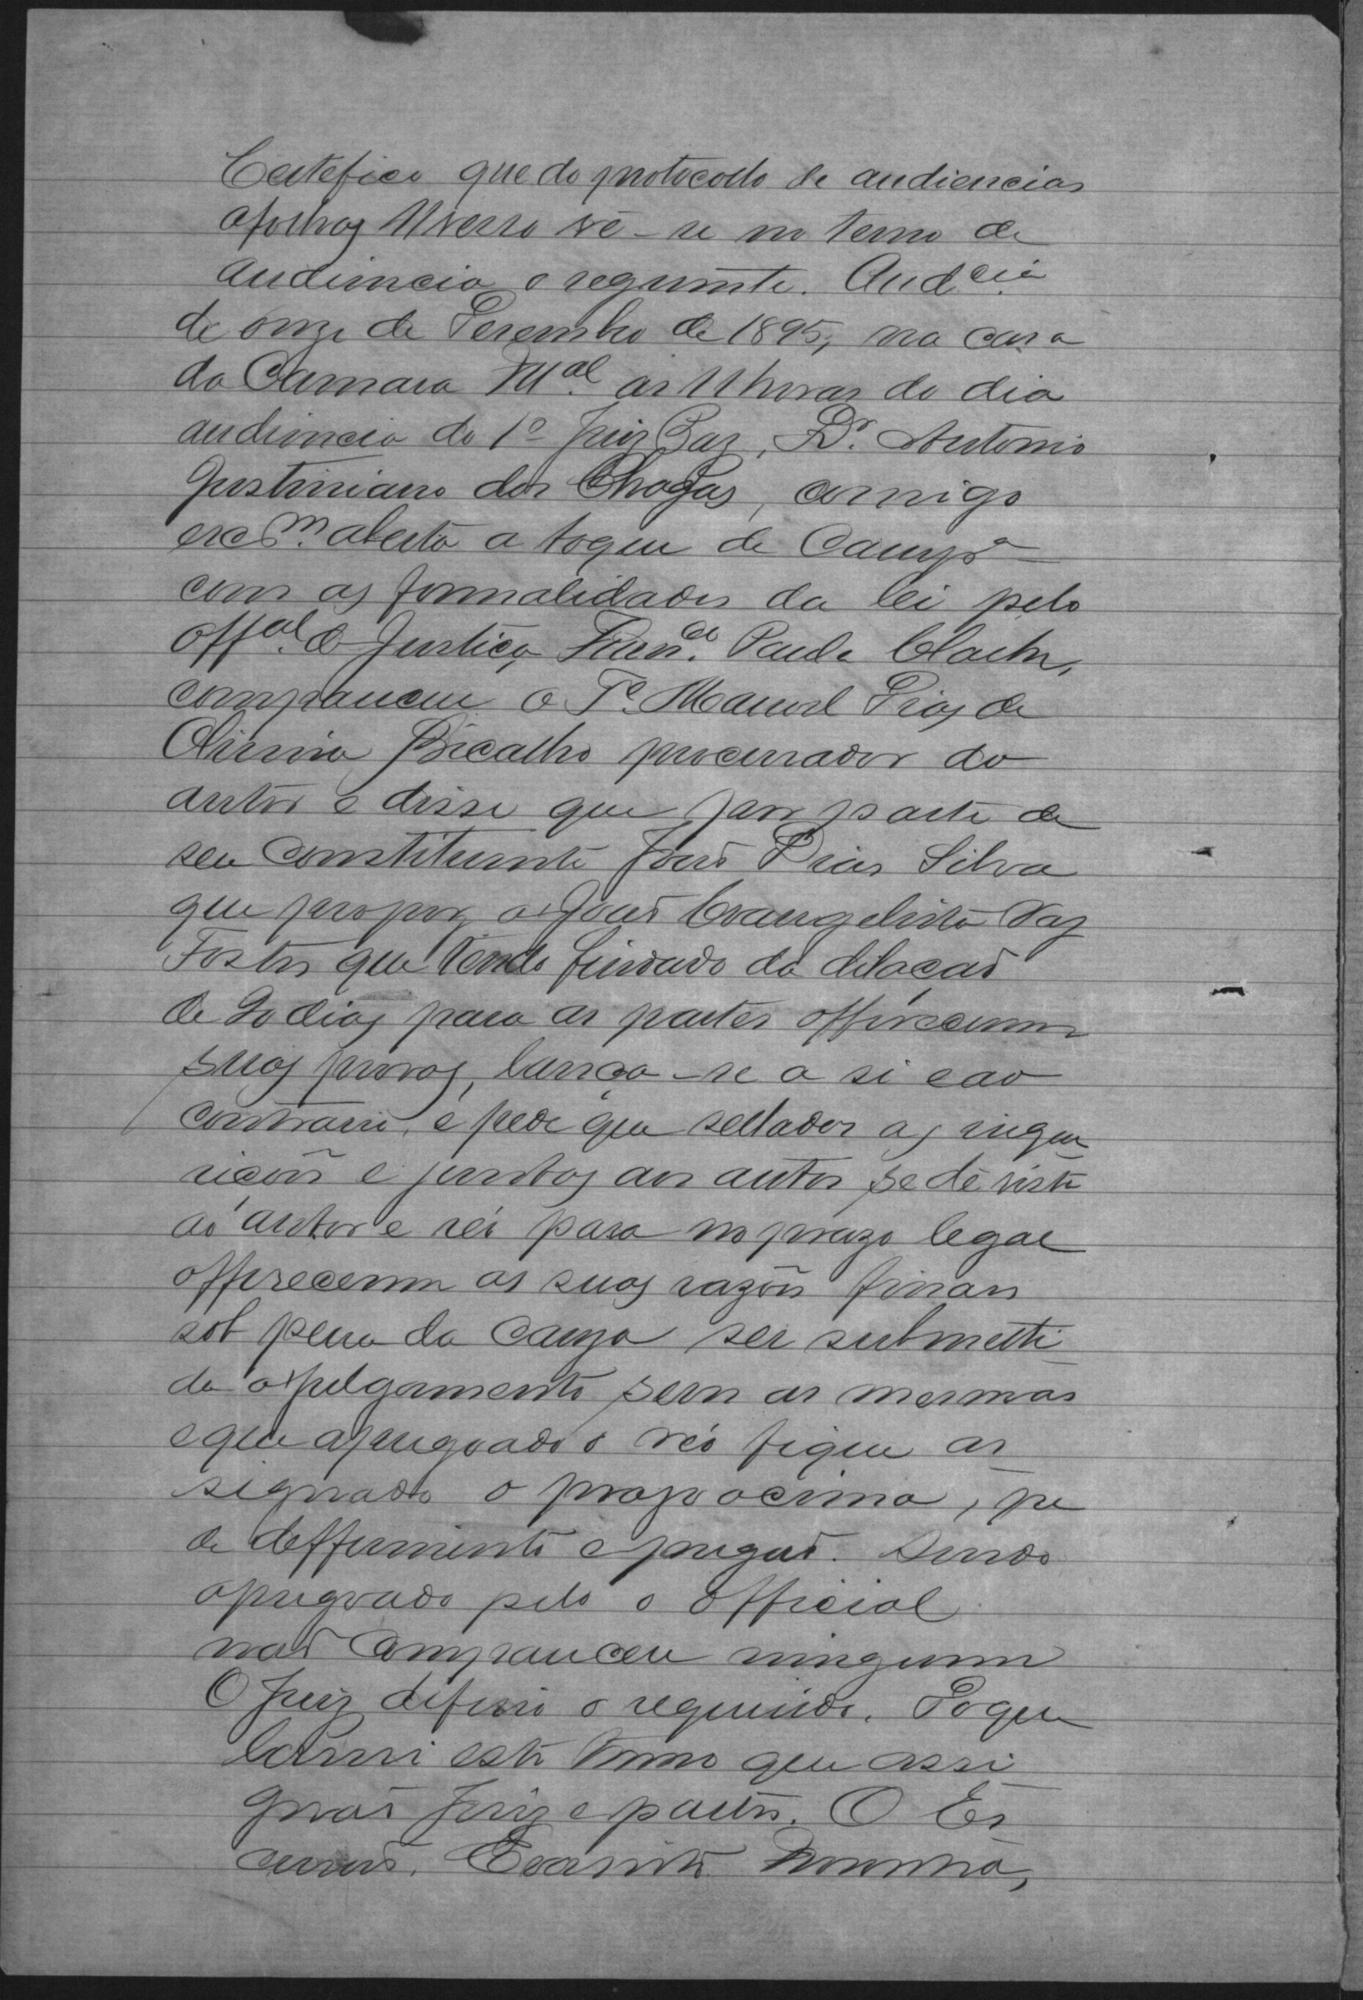 Certefico que do protocollo de audiencias
afolhas 11 verso vê-se no termo de
audiencia o seguinte. Aud.cia
de onze de Desembro de 1895, na casa
da Camara M.al as 11 horas do dia
audiencia do 1º Juiz Paz, Dr. Antonio
Justiniano das Chagas, comigo
esc.m aberta a toque de Camp.a
com as formalidades da lei pelo
Off.al de Justiça, Fran.co Paula
compareceu o T.e Manoel Dias de
Oliveira Bicalho procurador do
autor e disse que por parte de
seu constituinte João Dias Silva
que propoz a João Evangelista Vaz
Tostes que tendo findado da dilação
de 20 dias para as partes offerecerem
suas provas, lança-se a si e ao
contrario, e pede que sellados as inque
rições e juntas aos autos se dê vista
ao autor e réo para no prazo legal
offerecerem as suas razões finaes
sob pena da causa ser submetti
da a julgamento sem as mesmas
e que apregoado o réo fique as
signado o prazo acima, pe
de defferimento e pregão. Sendo
apregoado pelo o official
não compareceu ninguem
O Juiz deferio o requerido. Do que
lavrei este termo que assi
gnão Juiz e partes. O Es
crivão. Evaristo